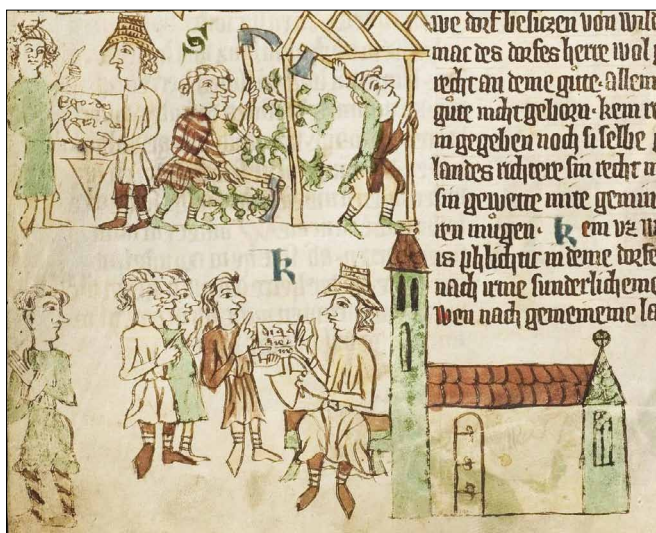 S
we dorf besiczen von wild
mac des dorfes herre wol
recht an deme gute · allein
gute nicht geborn · kein re
in gegeben noch si selbe
landes richtere sin recht
sin gewette mite
ren mugen · kein vz
k
is phlichtic in deme dorfe
nach irme sunderlicheme
wen nach gemeineme la